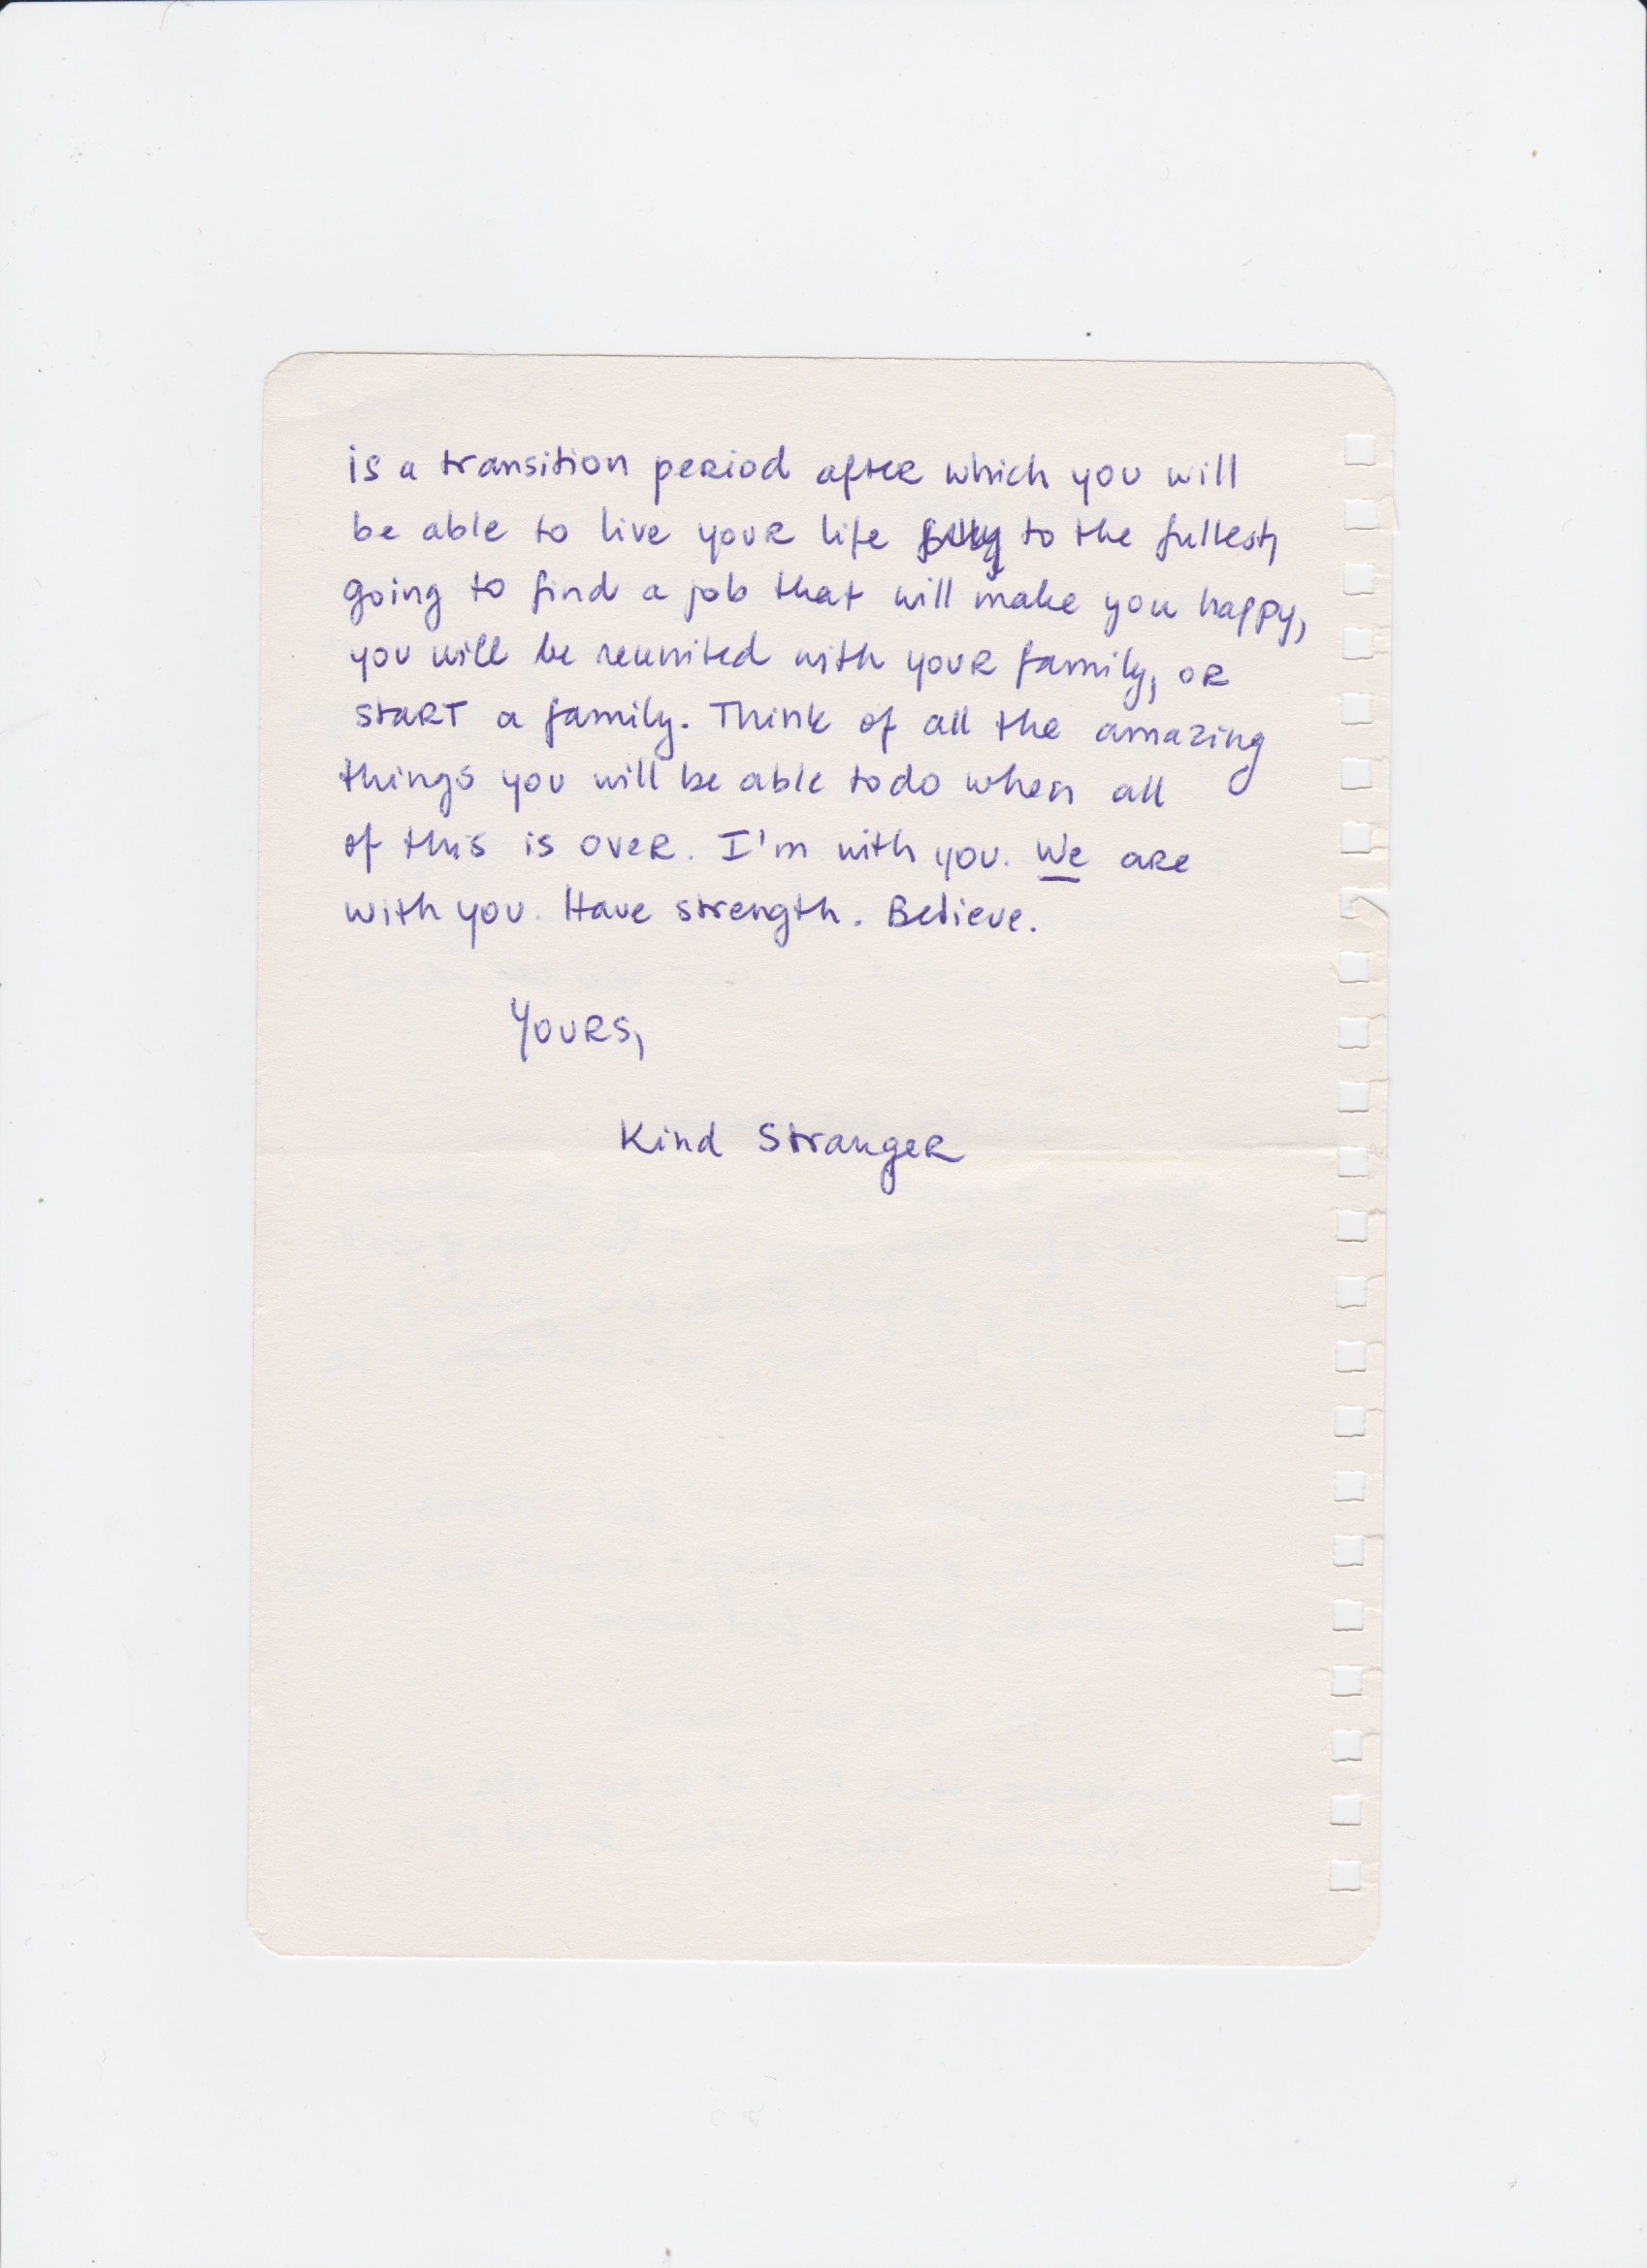 is a transition period after which you will
be able to live your life to the fullest,
going to find a job that will make you happy,
you will be reunited with your family, or
start a family. Think of all the amazing
things you will be able to do when all
of this is over. I'm with you. We are
with you. Have strength. Believe.
Yours,
Kind Stranger